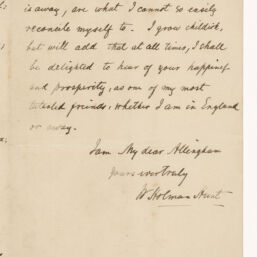 is away, are what I cannot so easily
reconcile myself to. I grow childish,
but will add that at all times, I shall
be delighted to hear of your happiness
and prosperity, as one of my most
talented friends, whether I am in England
or away.
I am My dear Allingham
Yours ever truly
W Holman Hunt